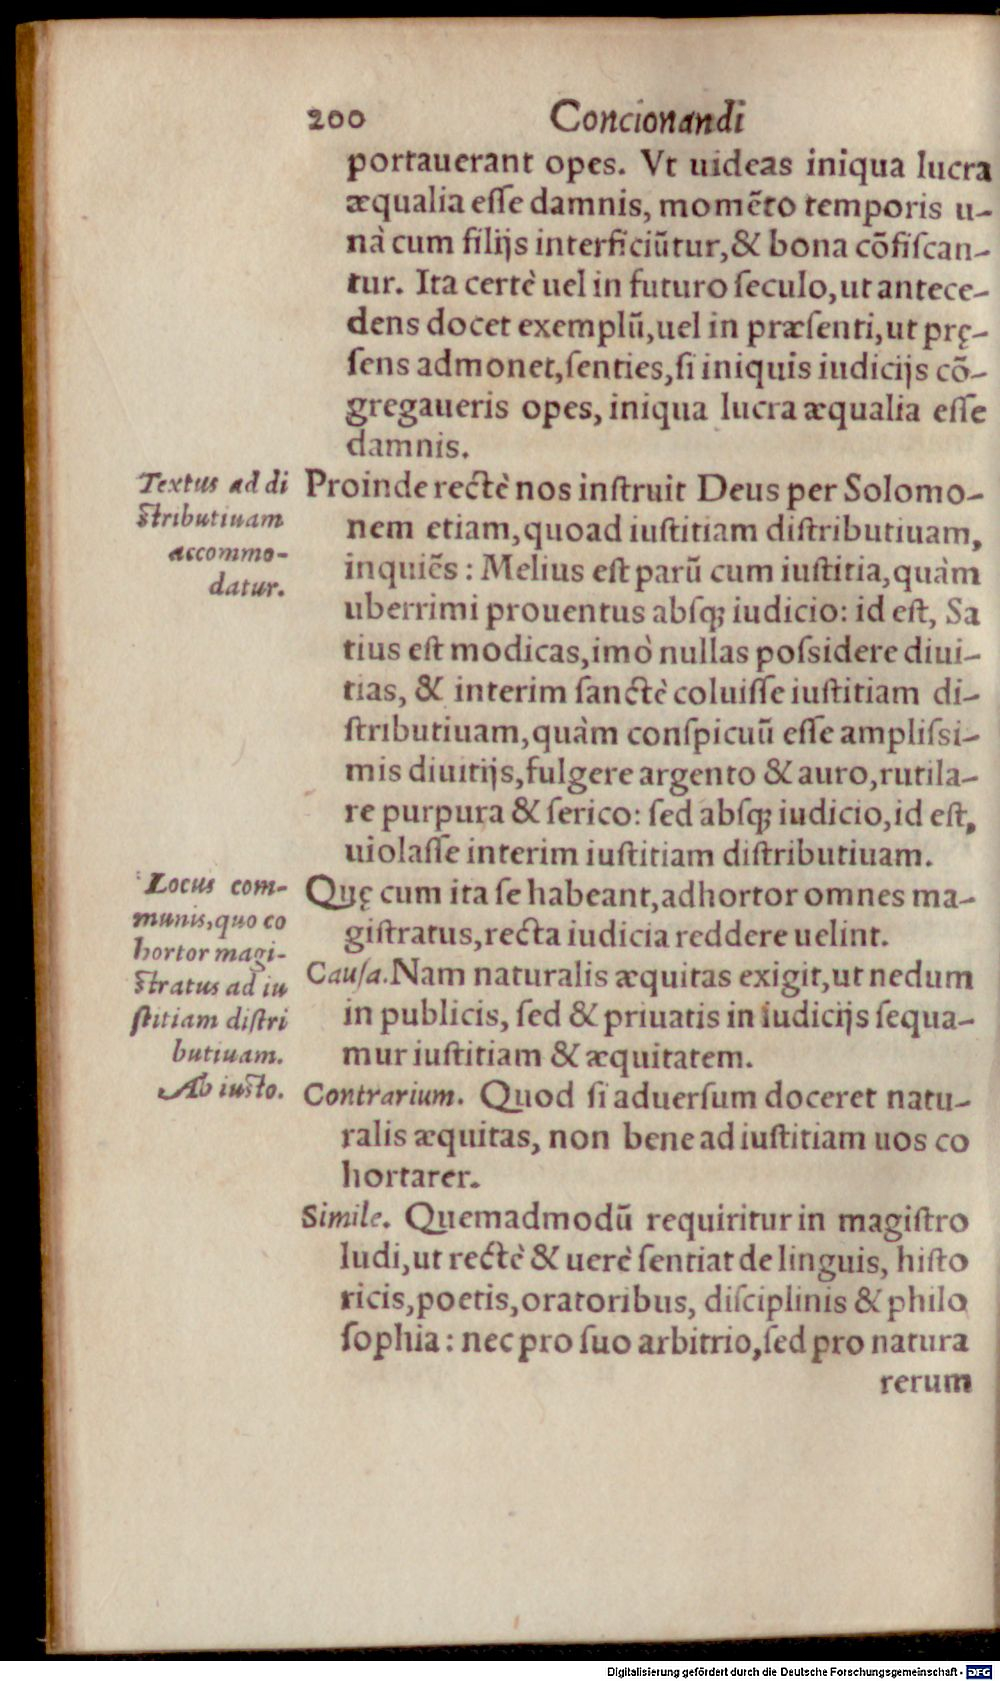 200 Concionandi
portauerant opes. Vt uideas iniqua lucra
æqualia eſſe damnis, momẽto temporis u-
nà cum filijs interficiũtur, & bona cõfiſcan-
tur. Ita certè uel in futuro ſeculo, ut antece-
dens docet exemplũ, uel in præſenti, ut prę-
ſens admonet, ſenties, ſi iniquis iudicijs cõ-
gregaueris opes, iniqua lucra æqualia eſſe
damnis.
Textus ad di
ſtributiuam
accommo-
datur.
Proinde rectè nos inſtruit Deus per Solomo-
nem etiam, quoad iuſtitiam diſtributiuam,
inquiẽs: Melius eſt parũ cum iuſtitia, quàm
uberrimi prouentus abſq; iudicio: id eſt, Sa
tius eſt modicas, imò nullas poſsidere diui-
tias, & interim ſanctè coluiſſe iuſtitiam di-
ſtributiuam, quàm conſpicuũ eſſe ampliſsi-
mis diuitijs, fulgere argento & auro, rutila-
re purpura & ſerico: ſed abſq; iudicio, id eſt,
uiolaſſe interim iuſtitiam diſtributiuam.
Locus com-
munis, quo co
hortor magi-
ſtratus ad iu
ſtitiam diſtri
butiuam.
Ab iuſto.
Quę cum ita ſe habeant, adhortor omnes ma-
giſtratus, recta iudicia reddere uelint.
Cauſa. Nam naturalis æquitas exigit, ut nedum
in publicis, ſed & priuatis in iudicijs ſequa-
mur iuſtitiam & æquitatem.
Contrarium. Quod ſi aduerſum doceret natu-
ralis æquitas, non bene ad iuſtitiam uos co
hortarer.
Simile. Quemadmodũ requiritur in magiſtro
ludi, ut rectè & uerè ſentiat de linguis, hiſto
ricis, poetis, oratoribus, diſciplinis & philo
ſophia: nec pro ſuo arbitrio, ſed pro natura
rerum
Digitalisierung gefördert durch die Deutsche Forschungsgemeinschaft - DFG